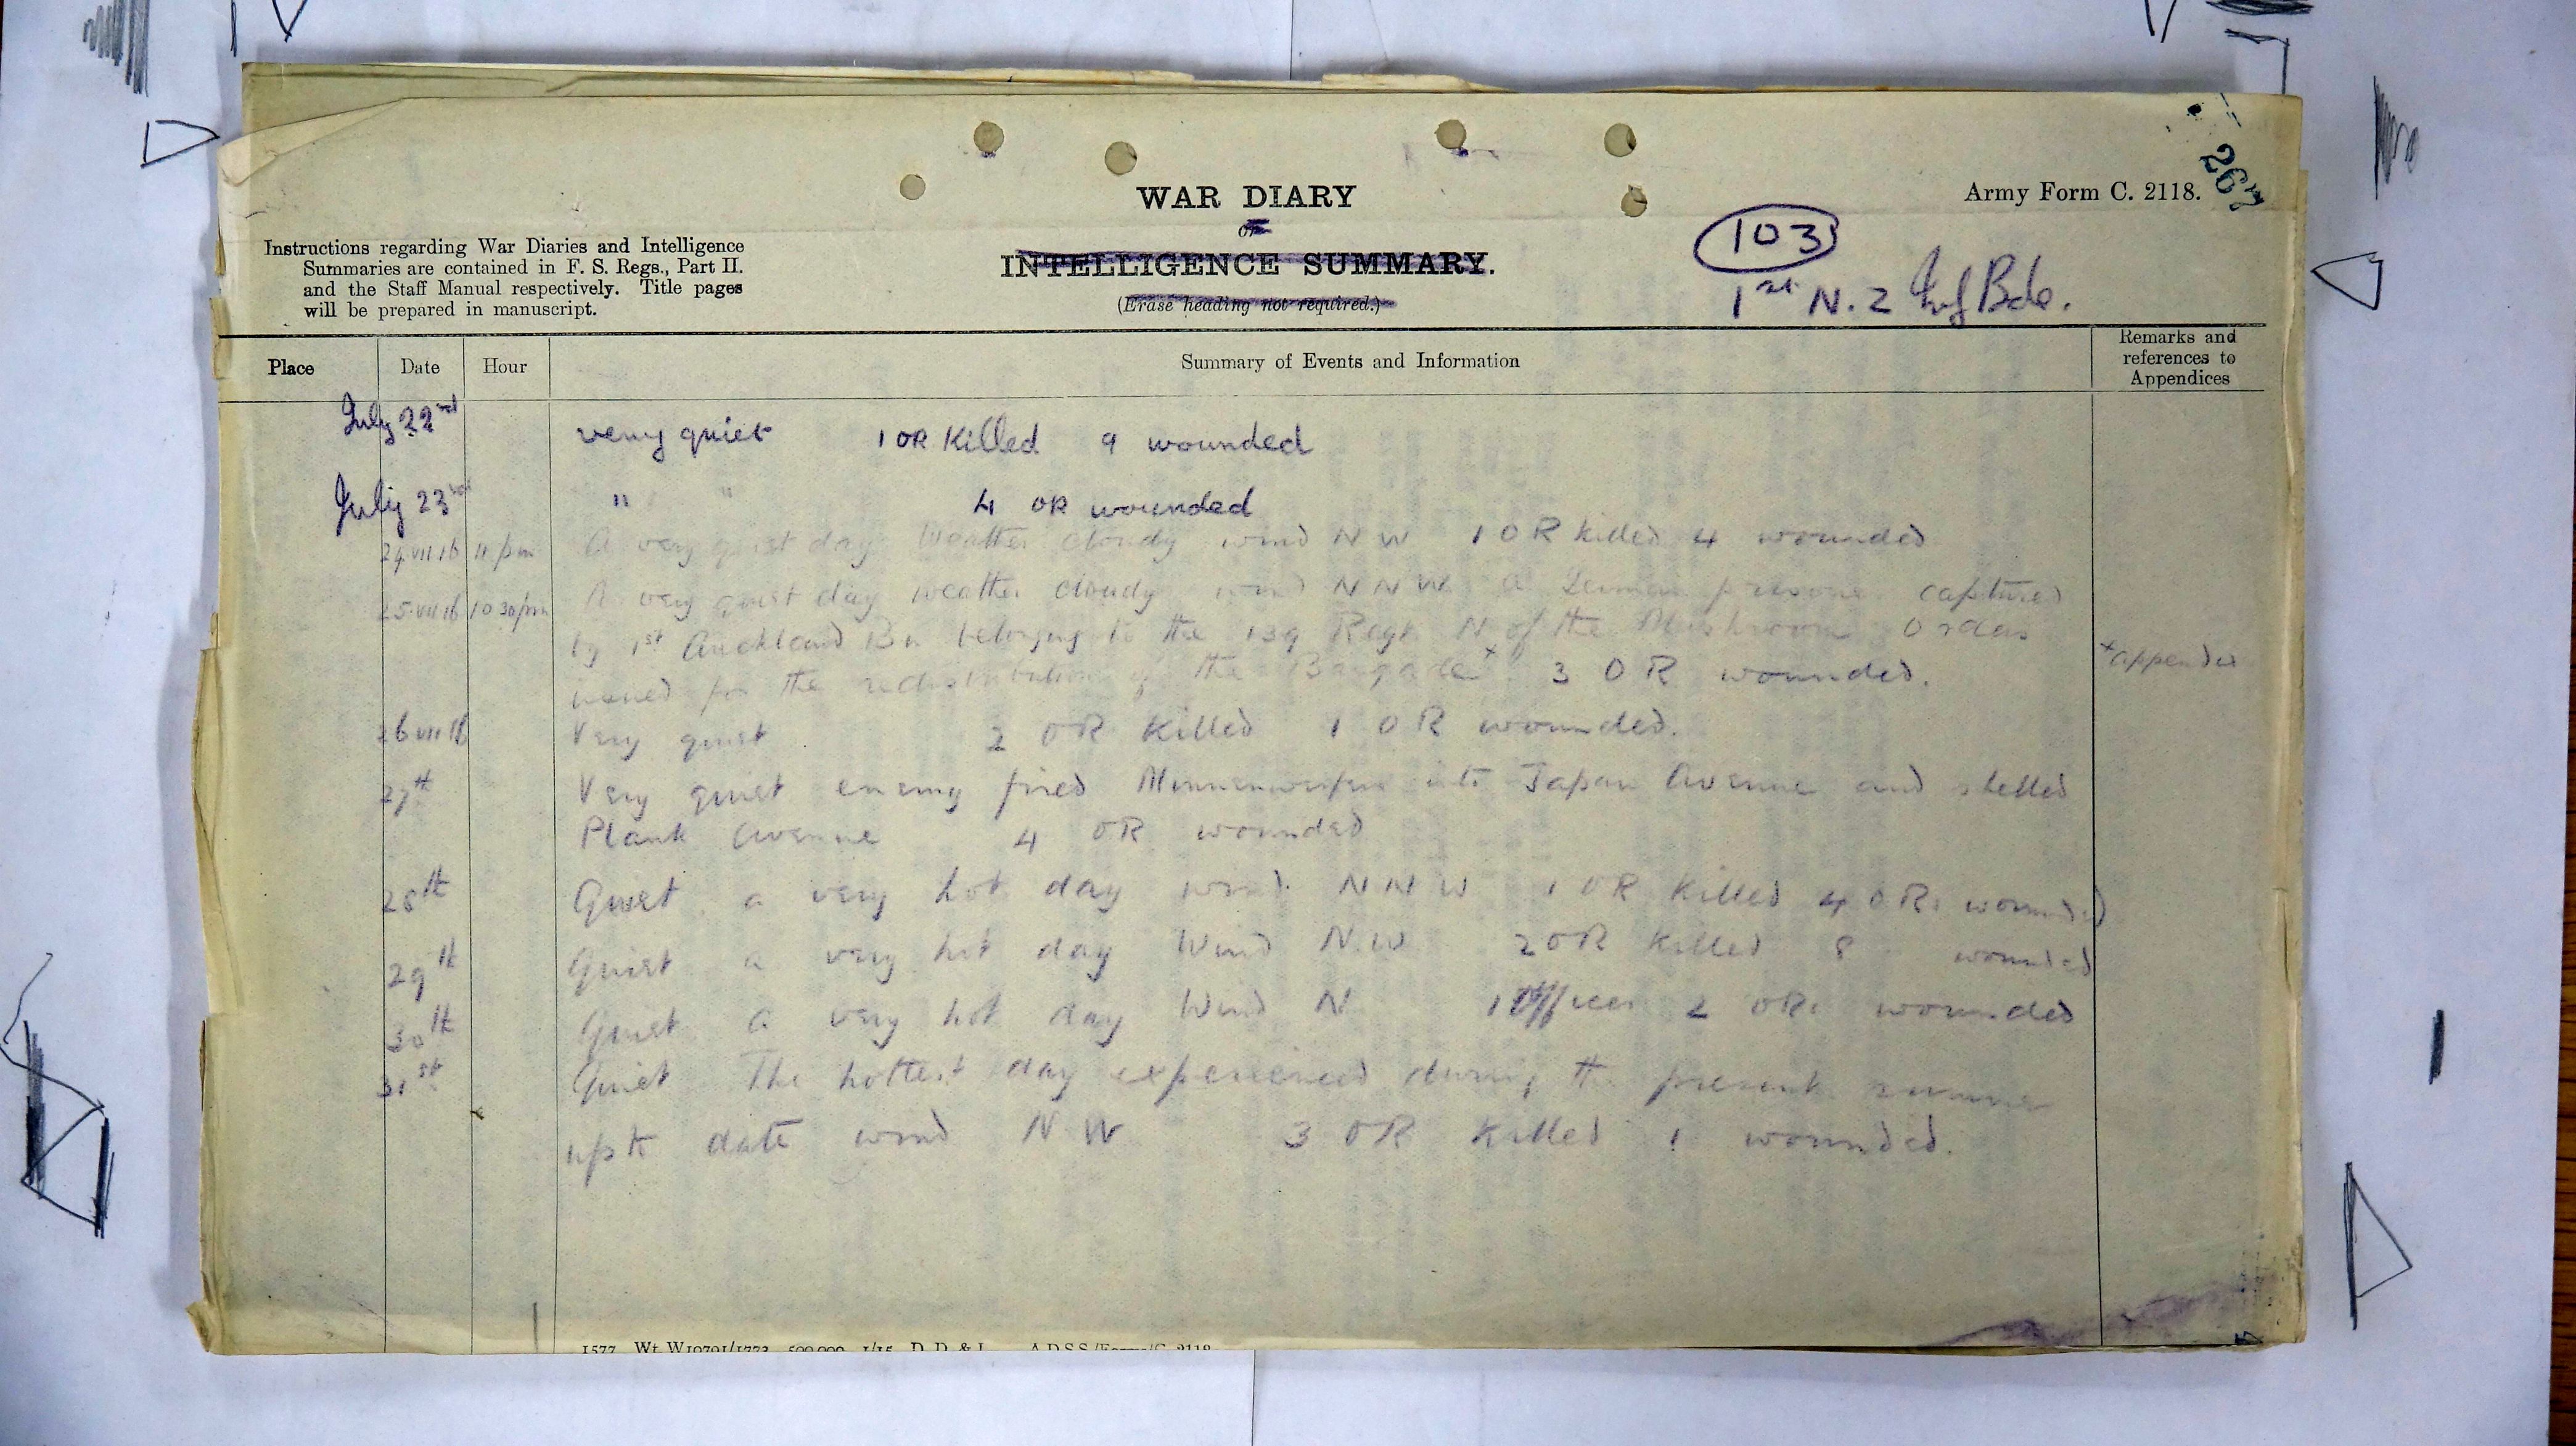 267
WAR DIARY
Army Form C. 2118.
or
INTELLIGENCE SUMMARY.
(Erase heading not required.)
103
1st N. Z Inf Bde.
Instructions regarding War Diaries and Intelligence
Summaries are contained in F. S. Regs., Part II.
and the Staff Manual respectively. Title pages
will be prepared in manuscript.
Place Date Hour Summary of Events and Information Remarks and references to Appendices
July 22nd very quiet 1 OR Killed 9 wounded
July 23rd " " 4 OR wounded
24.VII.16 11 pm A very quiet day Weather cloudy wind N W 1 O R killed 4 wounded
25.VII.16 10 30 pm A very quiet day weather cloudy wind N N W a German prisoner captured
by 1st Auckland Bn belonging to the 139 Regt N of the Mushroom Orders
issued for the redistribution of the Brigade x 3 O R wounded. x appendix
26 VII 16 Very quiet 2 OR Killed 1 O R wounded.
27th Very quiet enemy fired Minnenwerfers into Japan Avenue and shelled
Plank Avenue 4 OR wounded
28th Quiet a very hot day wind N N W 1 OR Killed 4 O Rs wounded
29th Quiet a very hot day Wind N.W 2 OR Killed 8 wounded
30th Quiet a very hot day Wind N 1 Officer 2 ORs wounded
31st Quiet The hottest day experienced during the present summer
up to date wind N W 3 OR Killed 1 wounded.
1577 Wt. W10791/1773 500,000 1/15 D. D. & L. A.D.S.S./Forms/C. 2118.